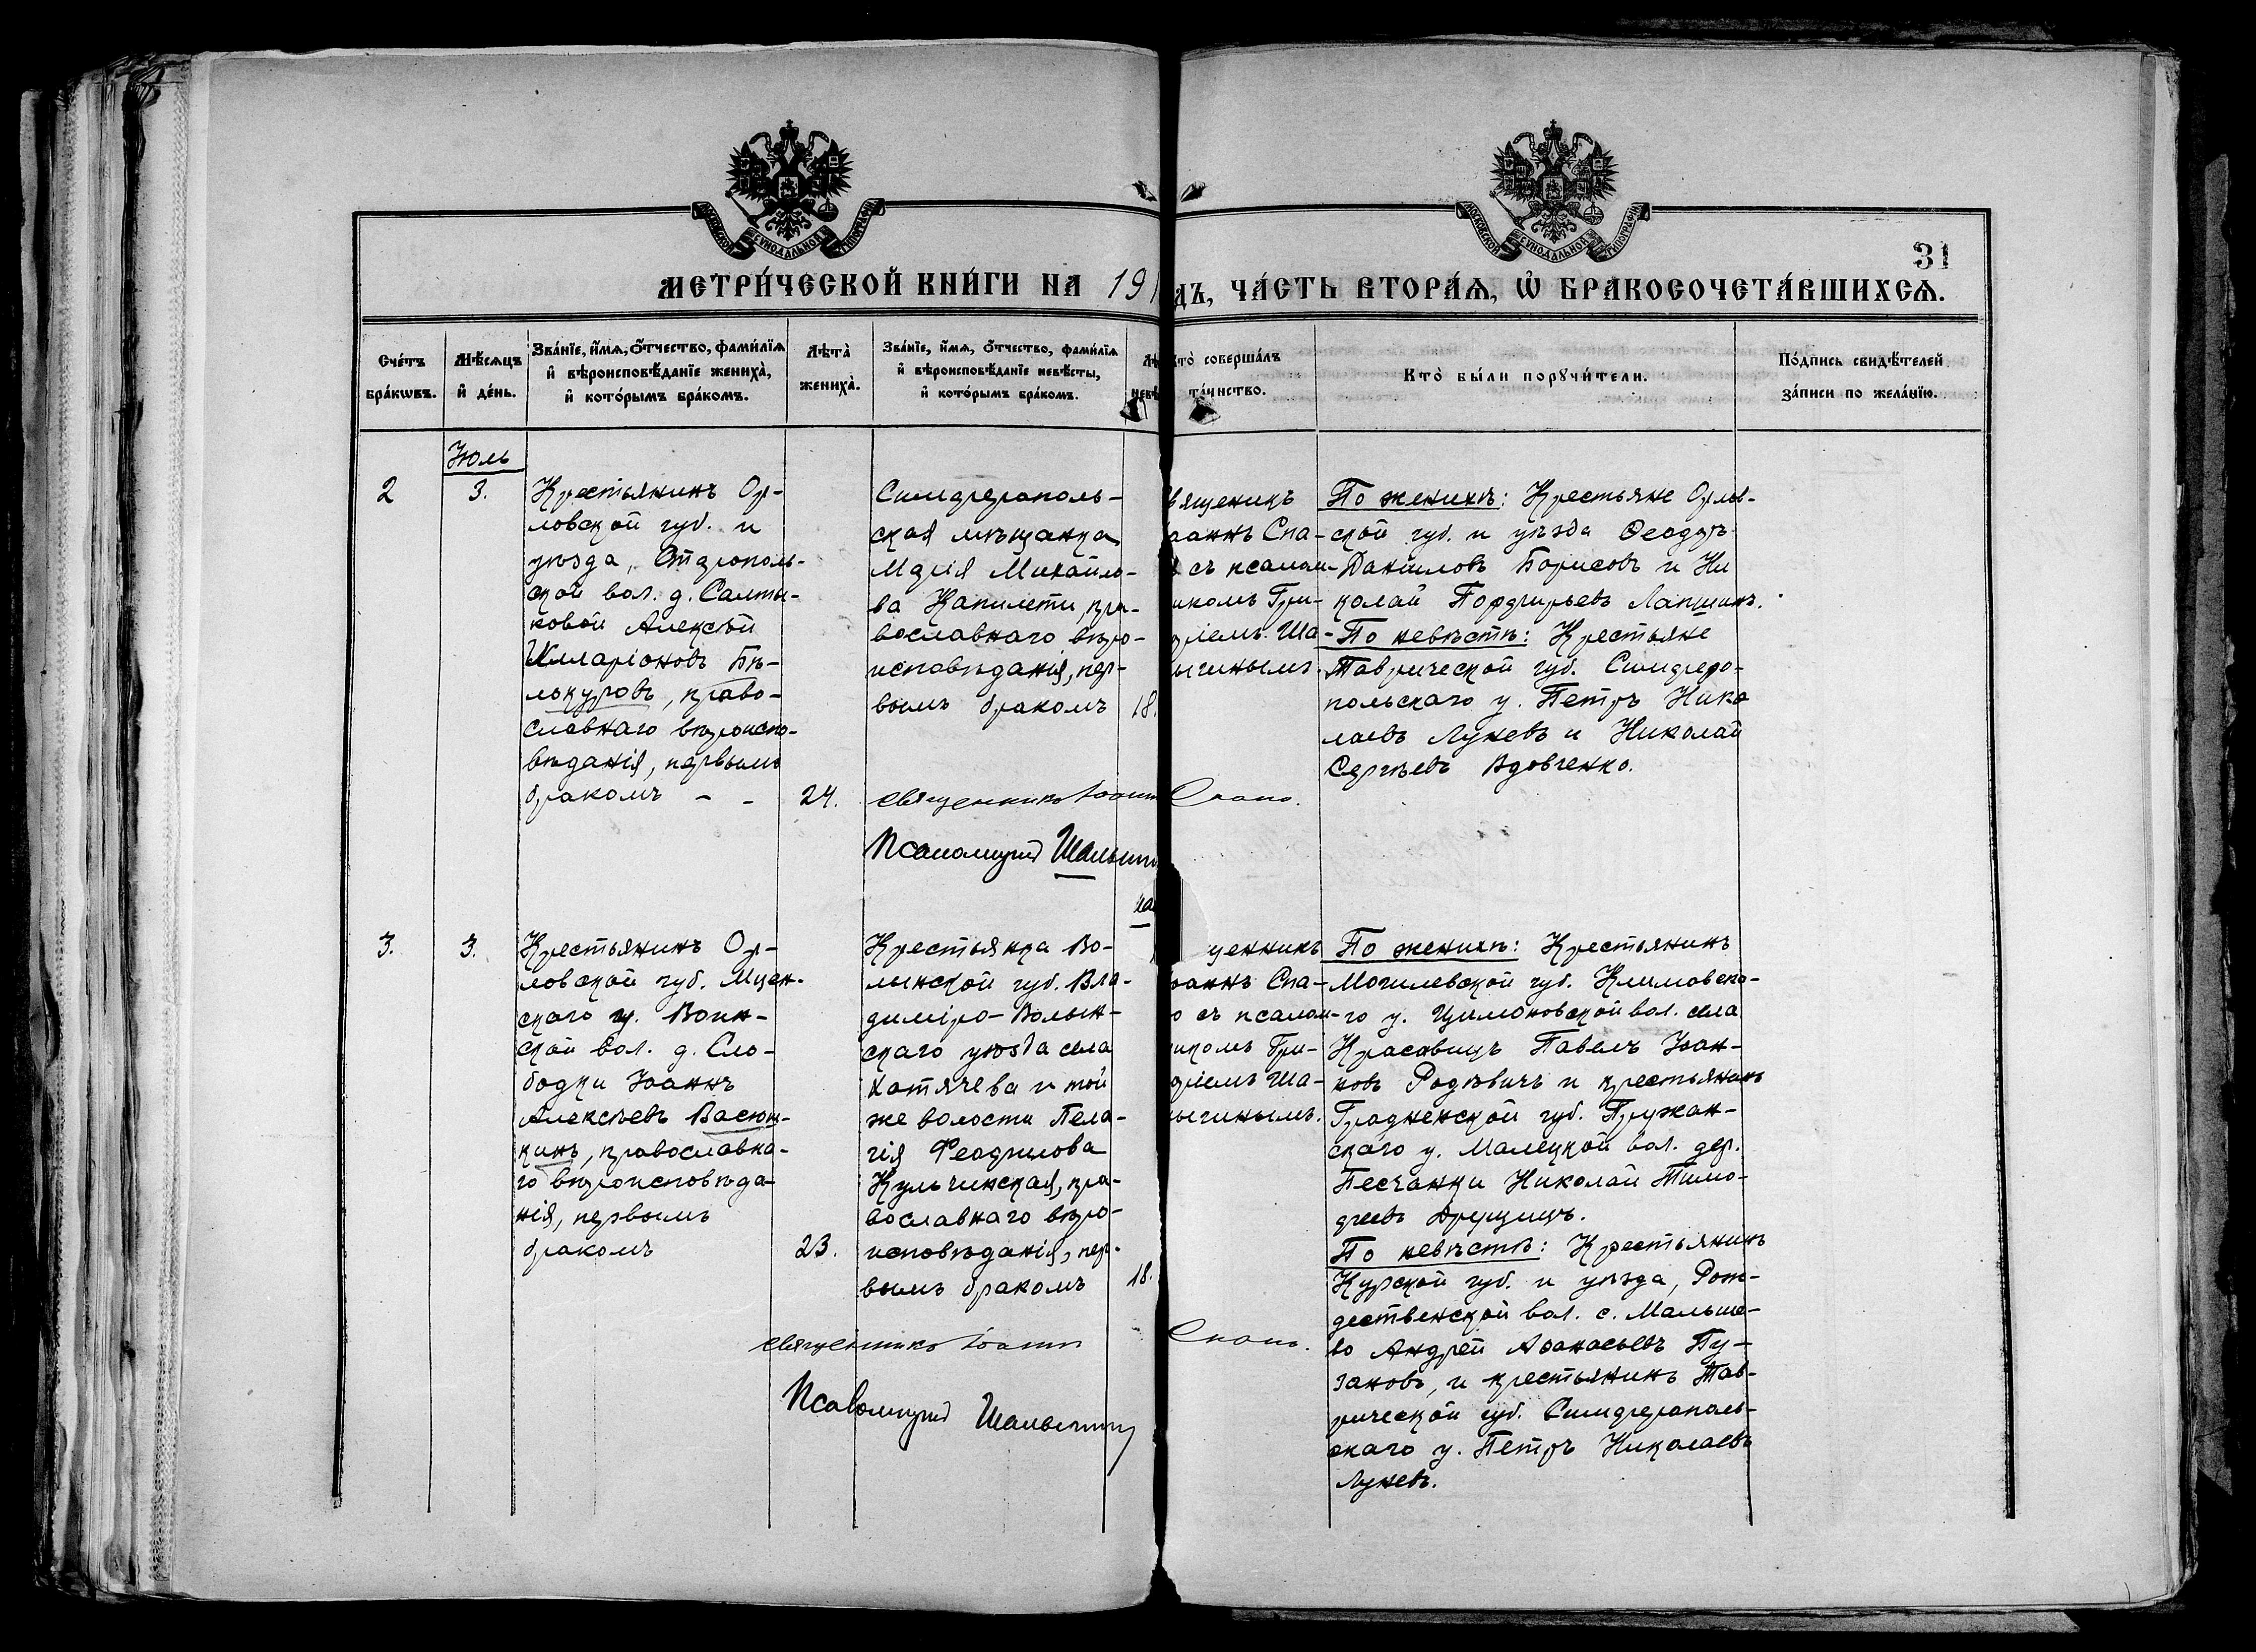 МОСКОВСКОЙ СѴНОДАЛЬНОЙ ТИПОГРАФІИ
МОСКОВСКОЙ СѴНОДАЛЬНОЙ ТИПОГРАФІИ
31
МЕТРИ́ЧЕСКОЙ КНИ́ГИ НА 191
ДЪ, ЧА́СТЬ ВТОРА́Я, Ѡ҆ БРАКОСОЧЕТА́ВШИХСѦ.
Сче́тъ
бра́кѡвъ.
Мѣ́сѧцъ
и҆ де́нь.
Зва́нїе, и҆́мѧ, ѻ҆́тчество, фами́лїѧ
и҆ вѣроисповѣ́данїе жениха̀,
и҆ кото́рымъ бра́комъ.
Лѣта̀
жениха̀.
Зва́нїе, и҆́мѧ, ѻ҆́тчество, фами́лїѧ
и҆ вѣроисповѣ́данїе невѣ́сты,
и҆ кото́рымъ бра́комъ.
Лѣ
невѣ
Кто̀ соверша́лъ
та́инство.
Кто̀ бы́ли порꙋчи́тели.
По́дпись свидѣ́телей
за́писи по жела́нїю.
Іюль
2
3.
Крестьянинъ Ор-
ловской губ. и
уѣзда, Ставрополь-
ской вол. д. Салты-
ковой Алексѣй
Илларіоновъ Бѣ-
локуровъ, право-
славнаго вѣроиспо-
вѣданія, первымъ
бракомъ - -
24.
Симферополь-
ская мѣщанка
Марія Михайло-
ва Капилети, пра-
вославнаго вѣро-
исповѣданія, пер-
вымъ бракомъ
18.
вященикъ
оаннъ Спа-
съ псалом-
икомъ Гри-
оріемъ Ша-
ыгинымъ.
По женихѣ: Крестьяне Орлов-
ской губ. и уѣзда Ѳеодоръ
Даниловъ Борисовъ и Ни
колай Порфирьевъ Лапшинъ.
По невѣстѣ: Крестьяне
Таврической губ. Симферо-
польскаго у. Петръ Нико
лаевъ Луневъ и Николай
Сергѣевъ Вдовченко.
священникъ Іоанн
Спаso.
Псаломщикъ Шалыгин
3.
3.
Крестьянинъ Ор-
ловской губ. Мцен-
скаго у. Воин-
ской вол. д. Сло-
бодки Іоаннъ
Алексѣевъ Васюн-
кинъ, православна-
го вѣроисповѣда-
нія, первымъ
бракомъ
23.
Крестьянка Во-
лынской губ. Вла-
диміро-Волын-
скаго уѣзда села
Хотячева и той
же волости Пела-
гія Феофилова
Кульчинская, пра-
вославнаго вѣро-
исповѣданія, пер-
вымъ бракомъ
18.
щенникъ
оаннъ Спа-
о съ псалом-
икомъ Гри-
оріемъ Ша-
ыгинымъ.
По женихѣ: Крестьянинъ
Могилевской губ. Климовска-
го у. Цимоновской вол. села
Красавицъ Павелъ Іоан-
новъ Родкевичъ и крестьянинъ
Гродненской губ. Пружан-
скаго у. Малецкой вол. дер.
Песчанки Николай Тимо-
феевъ Друщицъ.
По невѣстѣ: Крестьянинъ
Курской губ. и уѣзда, Рож-
дественской вол. с. Малыше-
во Андрей Аѳанасьевъ Пу-
зановъ, и крестьянинъ Тав-
рической губ. Симферополь-
скаго у. Петръ Николаевъ
Луневъ.
священникъ Іоанн
Псаломщикъ Шалыгин